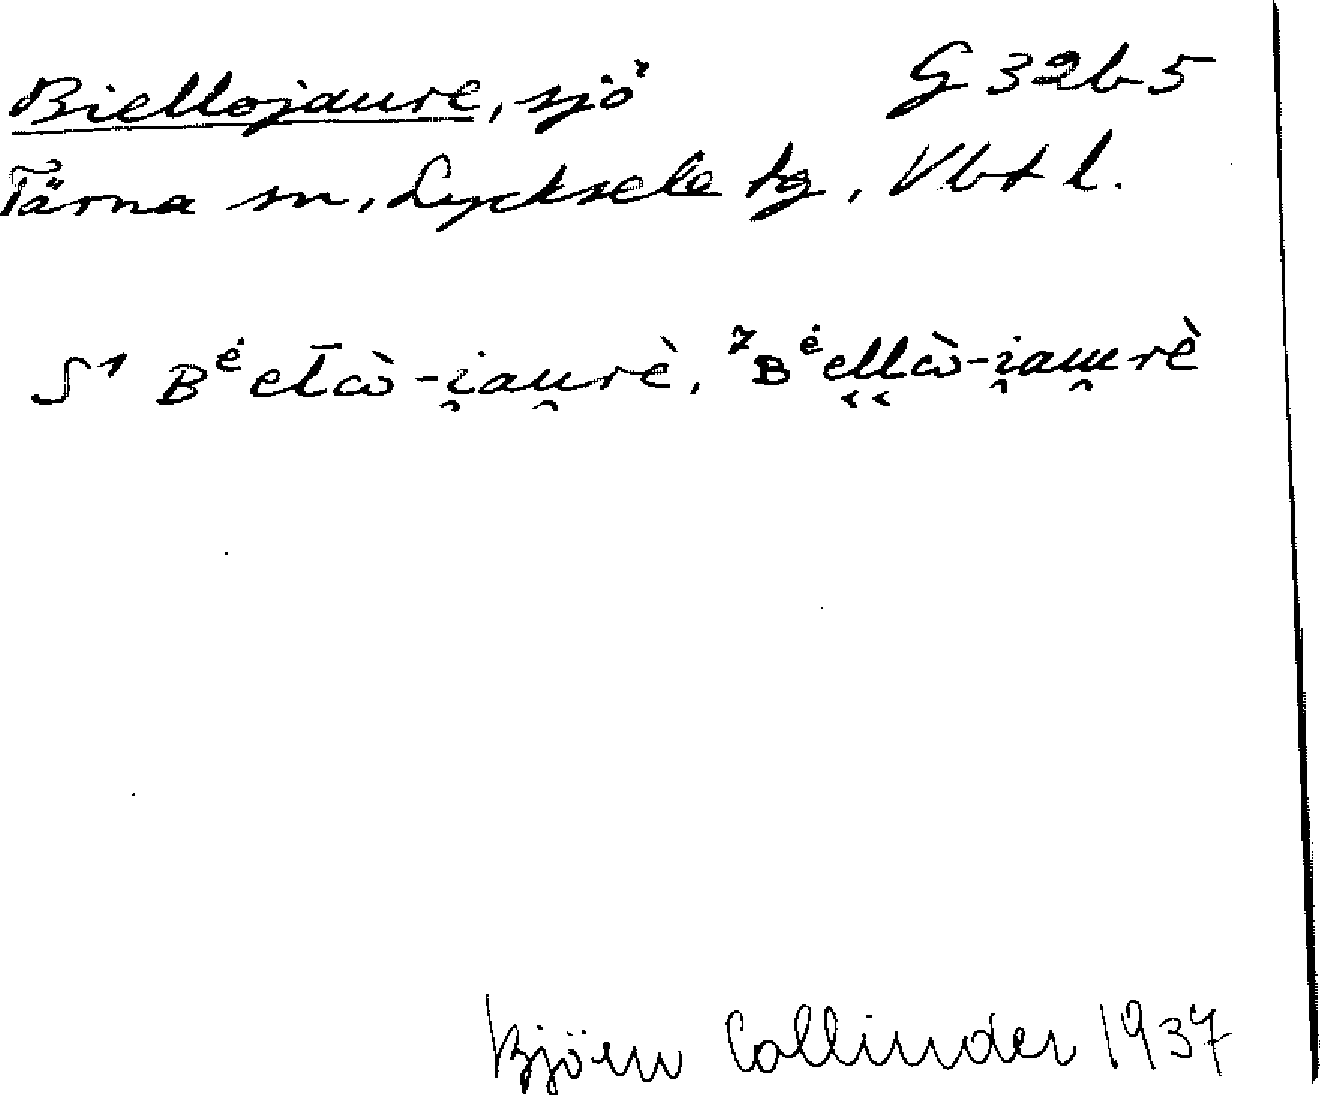 Biellojaure, sjö G 32b5
Tärna sn, Lycksele tg, Vbt l.
S1 Bėel̄ɷ̀-i̯au̯rè, 7Bėellɷ̀-i̯au̯rè
Björn Collinder 1937